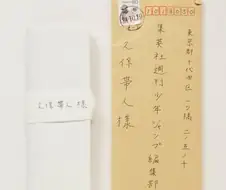 東京都千代田区一ツ橋二ノ五ノ十
集英社週刊少年ジャンプ編集部
久保帯人様
久保帯人様